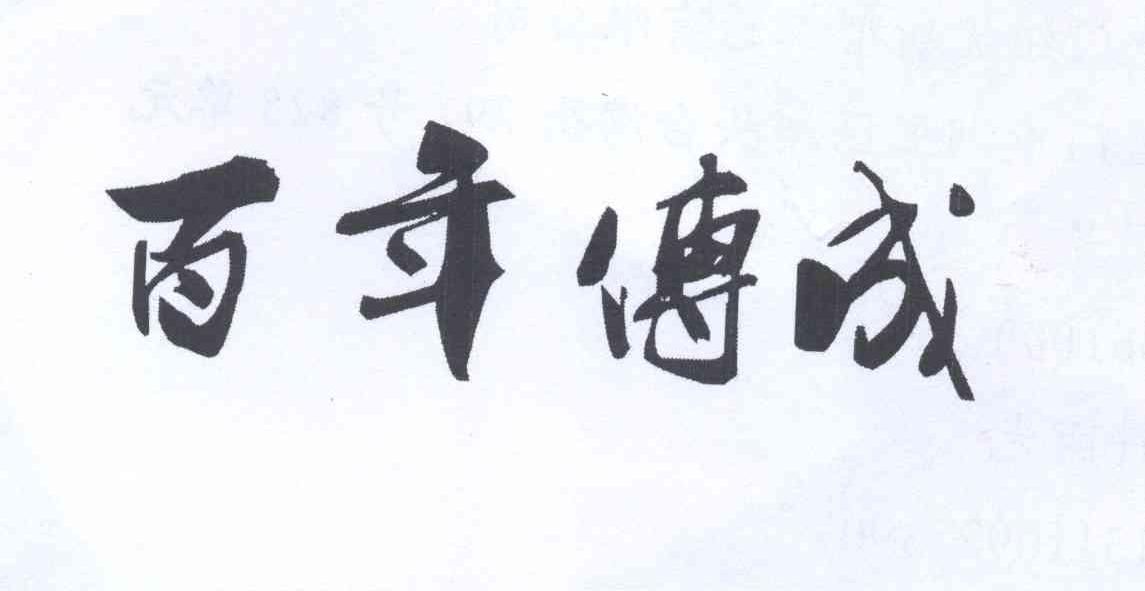 百年傳成